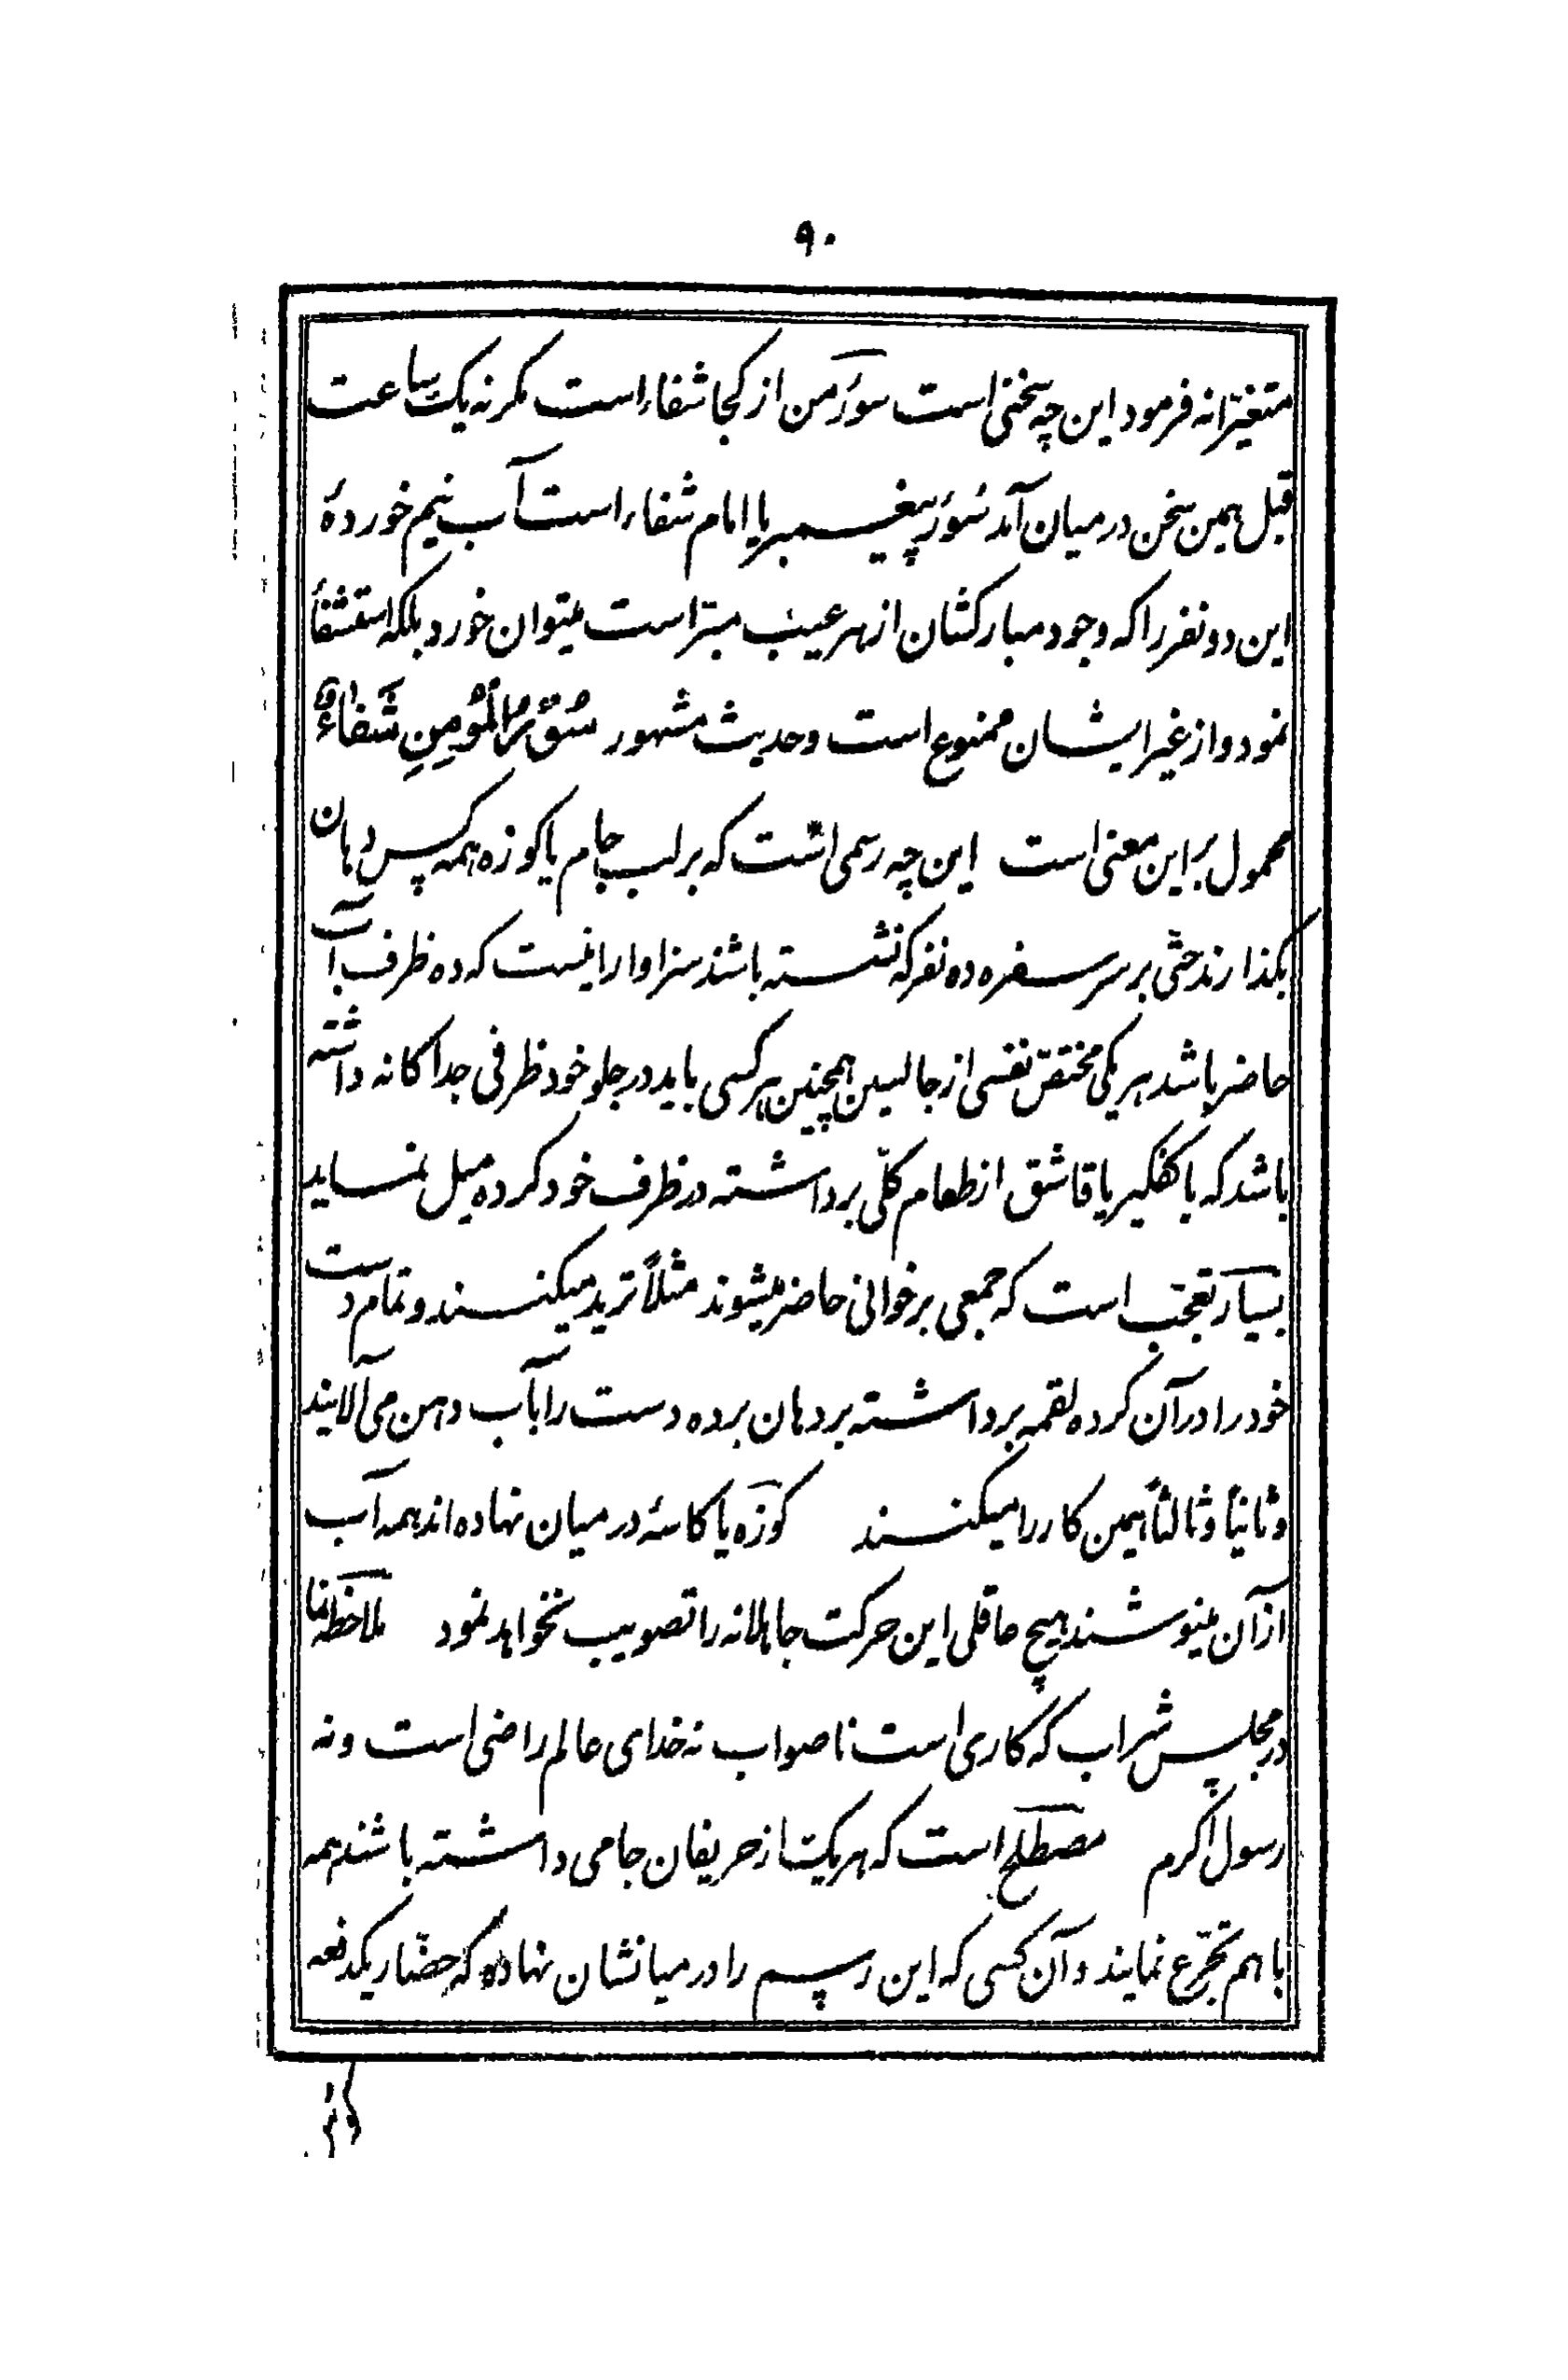 ۹۰
متغیّرانه فرمود این چه سخنی است سؤر من از کجا شفاء است مکر نه یک ساعت
قبل همین سخن در میان آمد سُؤر پیغمبر یا امام شفاء است آب نیم خوردهٔ
این دو نفر را که وجود مبارکشان از هر عیب مبرّاست میتوان خورد بلکه استشفأ
نمود و از غیر ایشان ممنوع است و حدیث مشهور سُؤْرُ الْمُؤْمِنِ شَفاءٌ
محمول بر این معنی است این چه رسمی است که بر لب جام یا کوزه همه کس دهان
بکذارند حتّی بر سر سفره ده نفر که نشسته باشند سزاوار اینست که ده ظرف آب
حاضر باشد هر یکی مختصّ نفسی از جالسین همچنین هر کسی باید در جلو خود ظرفی جداکانه داشته
باشد که با کفکیر یا قاشق از طعام کلّی برداشته در ظرف خود کرده میل نماید
بسیار تعجّب است که جمعی بر خوانی حاضر میشوند مثلاً ترید میکنند و تمام دست
خود را در آن کرده لقمه برداشته بر دهان برده دست را بآب دهن می آلایند
و ثانیاً و ثالثاً همین کار را میکنند کوزه یا کاسهٔ در میان نهاده اند همه آب
از آن مینوشند هیچ عاقلی این حرکت جاهلانه را تصویب نخواهد نمود ملاحظه نما
در مجلس شراب که کاری است ناصواب نه خدای عالم راضی است و نه
رسول اکرم مصطلح است که هر یک از حریفان جامی داشته باشند همه
با هم تجرّع نمایند و آن کسی که این رسم را در میانشان نهاده که حضّار یکدفعه